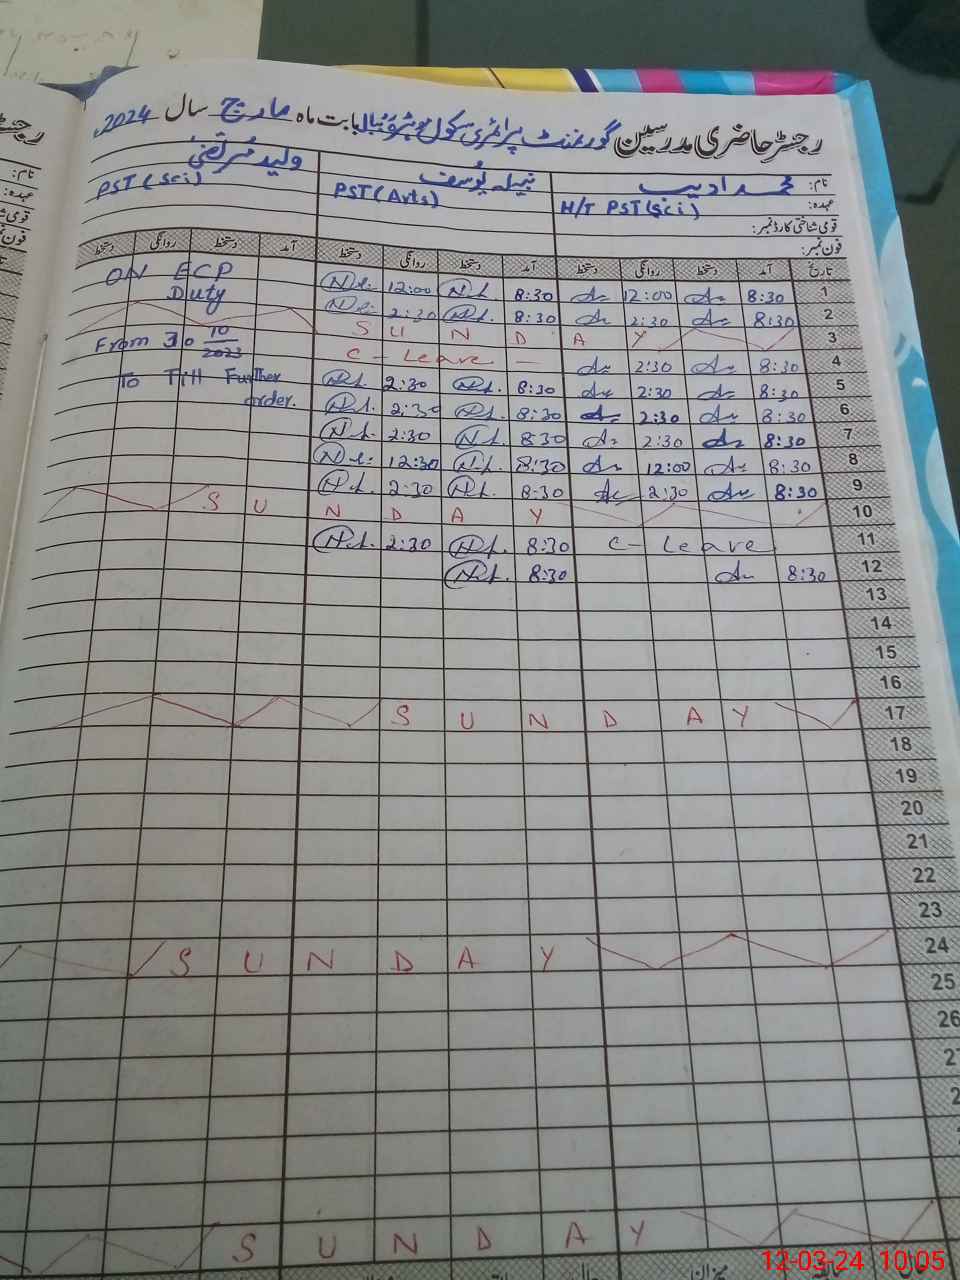 رجسٹر حاضری مدرسین گورنمنٹ پرائمری سکول بابت ماہ مارچ سال 2024ء
نام: محمد ادیب نبیلہ یوسف ولید مرتضیٰ
عہدہ: H/T PST (Sci) PST (Arts) PST (Sci)
قومی شناختی کارڈ نمبر:
فون نمبر:
تاریخ آمد دستخط روانگی دستخط آمد دستخط روانگی دستخط آمد دستخط روانگی دستخط
ON ECP 12:00 8:30 12:00 8:30 1
Duty 2:30 8:30 2:30 8:30 2
S U N D A Y 3
From 30 10/2023 C - Leave - 2:30 8:30 4
To Till Further 2:30 8:30 2:30 8:30 5
order. 2:30 8:30 2:30 8:30 6
2:30 8:30 2:30 8:30 7
12:30 8:30 12:00 8:30 8
2:30 8:30 2:30 8:30 9
S U N D A Y 10
2:30 8:30 C - Leave 11
8:30 8:30 12
13
14
15
16
S U N D A Y 17
18
19
20
21
22
23
S U N D A Y 24
25
26
S U N D A Y
میزان
12-03-24 10:05